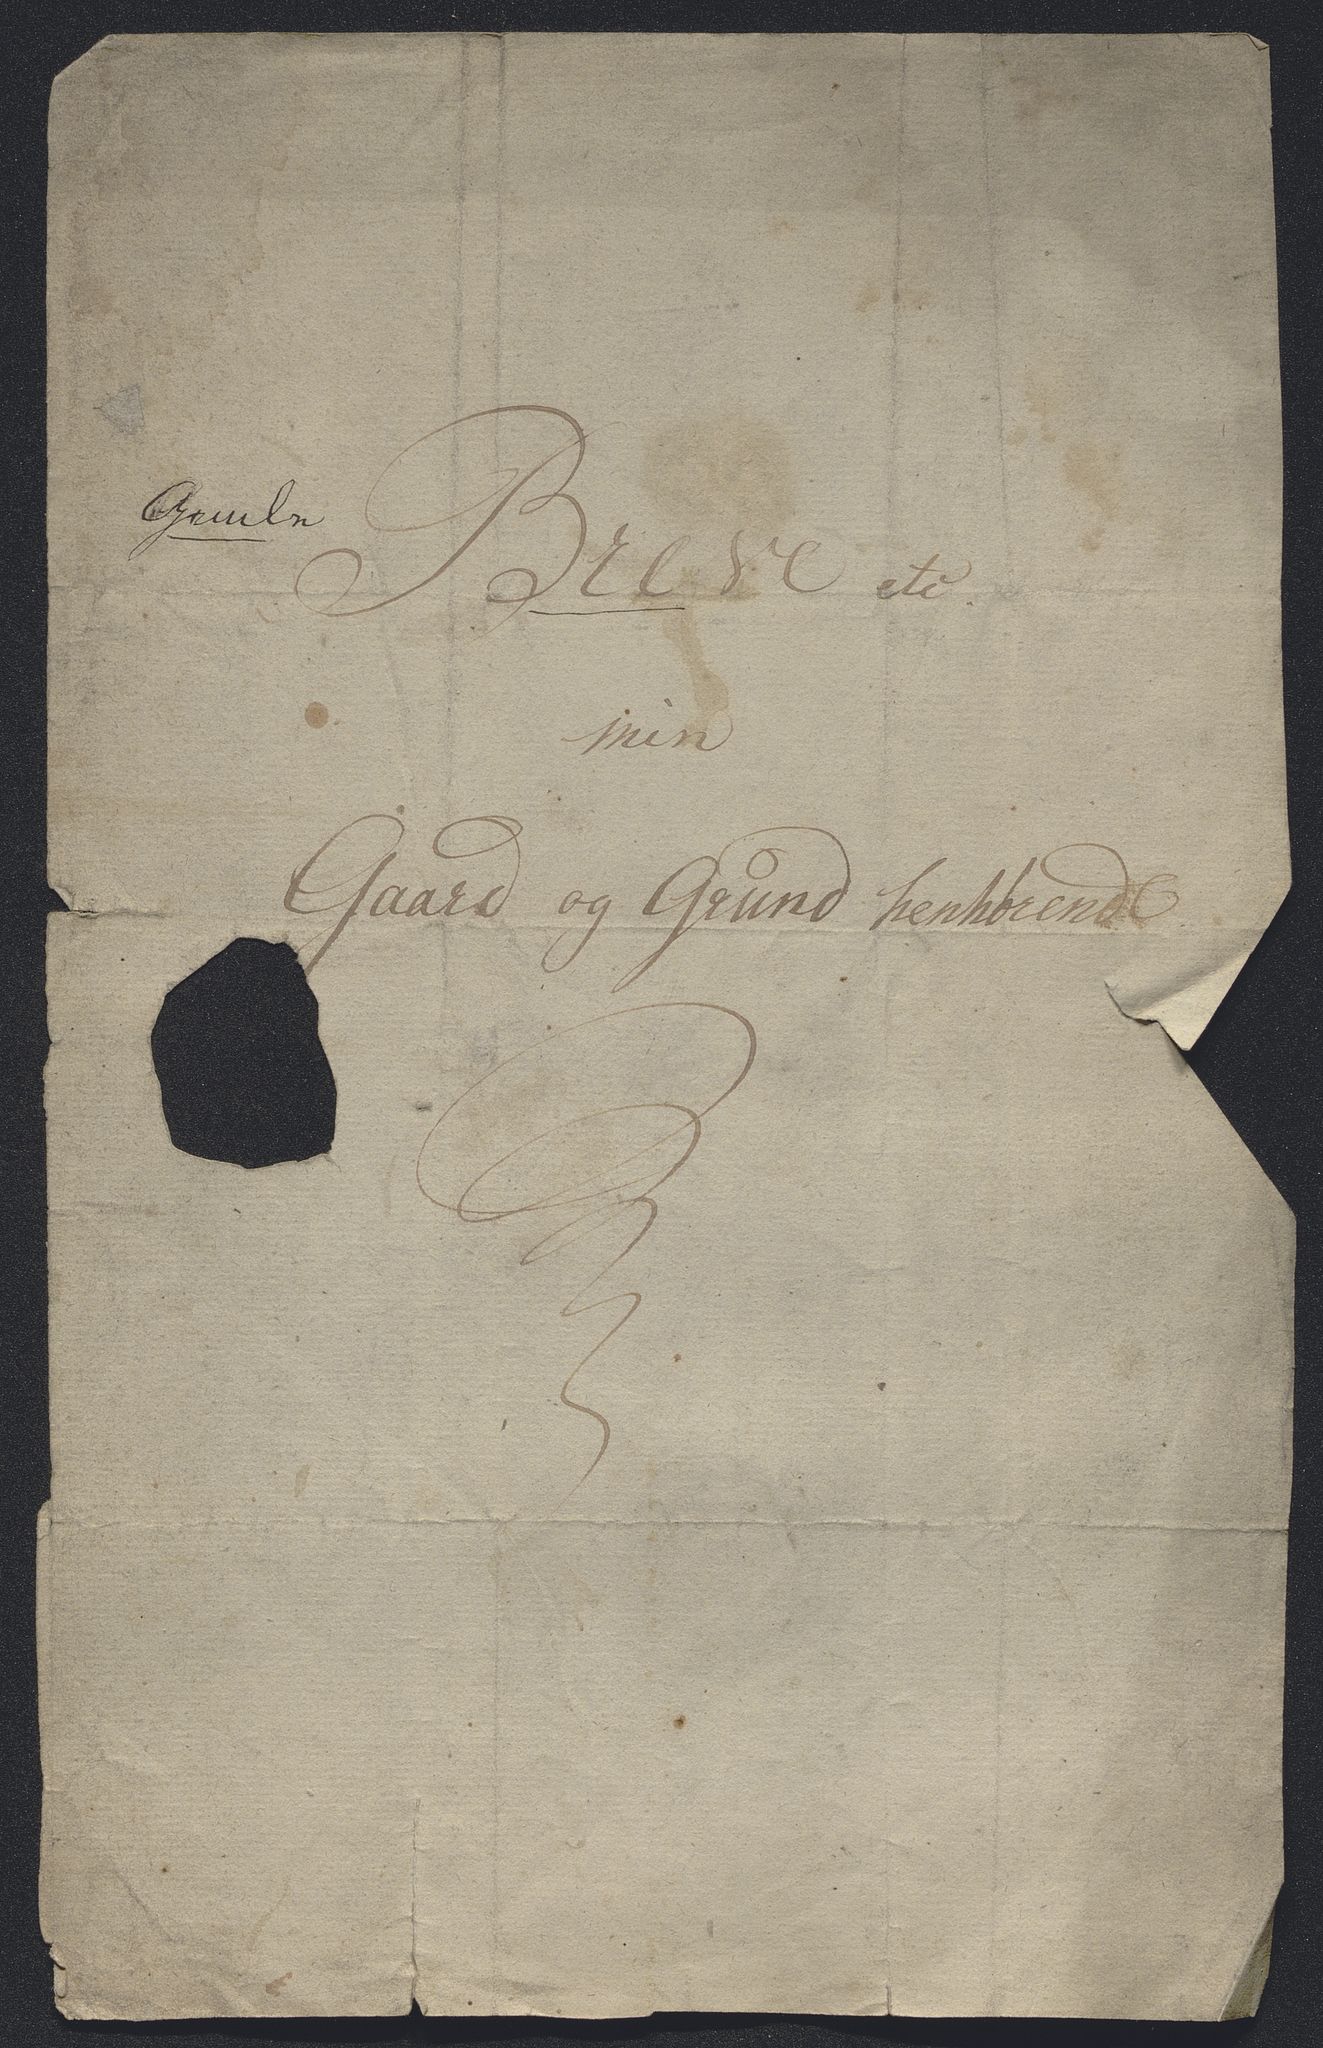 Gamle Breve etc.
min
Gaard og Grund henhørende